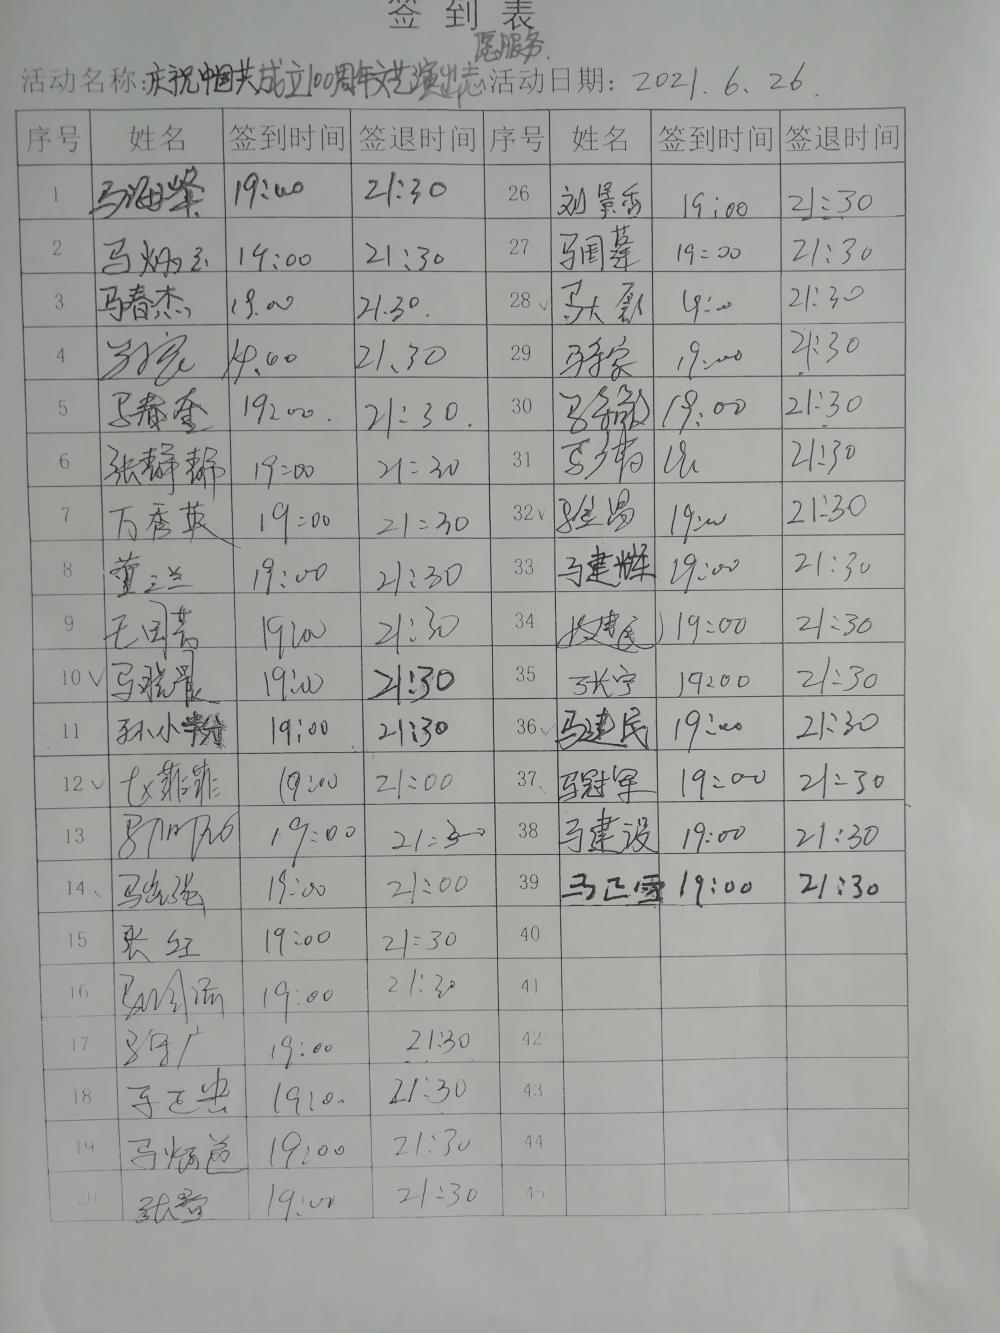 签到表
愿服务
活动名称:庆祝中国共成立100周年文艺演出志 活动日期: 2021.6.26.
序号 姓名 签到时间 签退时间 序号 姓名 签到时间 签退时间
1 马海峰 19:00 21:30 26 刘景香 19:00 21:30
2 马炳玉 19:00 21:30 27 马国 19:00 21:30
3 马春杰 19.00 21.30. 28 马大 19:00 21:30
4 21.30 29 马 19:00 21:30
5 马春奎 19:00. 21:30. 30 马 19:00 21:30
6 张静静 19:00 21:30 31 21:30
7 万秀英 19:00 21:30 32 19:00 21:30
8 董三兰 19:00 21:30 33 马建辉 19:00 21:30
9 19:00 21:30 34 19:00 21:30
10 马晓晨 19:00 21:30 35 张宁 19:00 21:30
11 孙小粉 19:00 21:30 36 马建民 19:00 21:30
12 菲菲 19:00 21:00 37 马冠军 19:00 21:30
13 19:00 21:30 38 马建设 19:00 21:30
14 马 19:00 21:00 39 马正雪 19:00 21:30
15 张红 19:00 21:30 40
16 马 19:00 21:30 41
17 马守广 19:00 21:30 42
18 马正忠 19:00 21:30 43
19 马炳 19:00 21:30 44
20 19:00 21:30 45